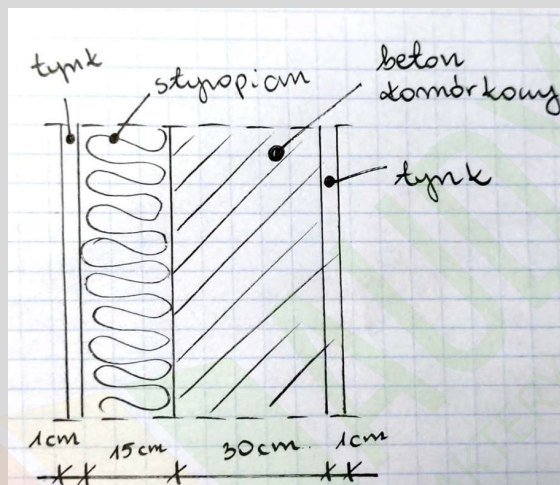 tynk
styropian
beton
komórkowy
tynk
1cm 15cm 30cm. 1cm